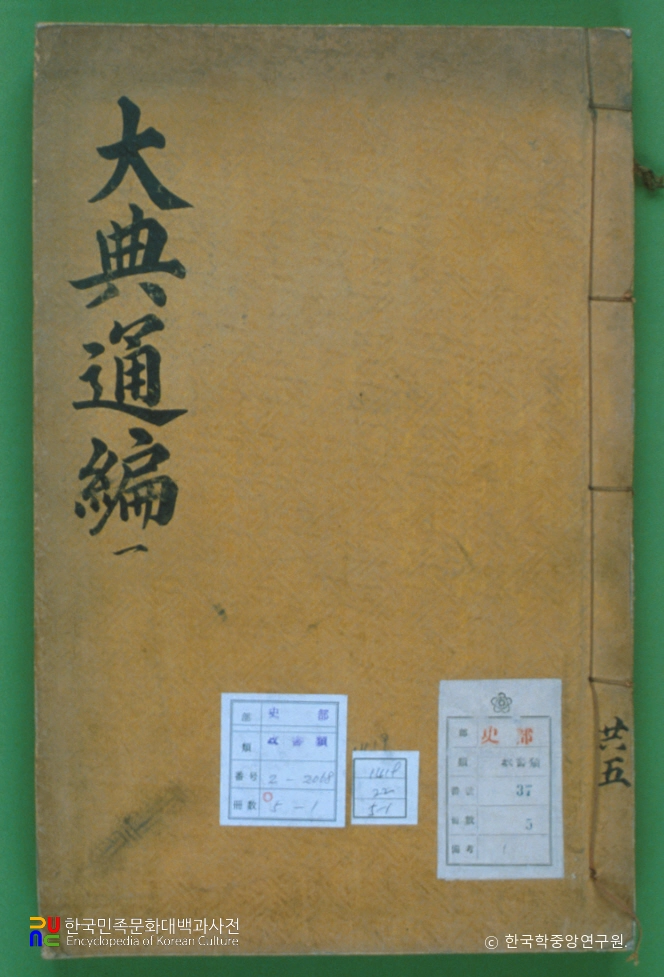 大典通編
一
共五
部 史 部
類 政書類
番号 2-2068
冊数 5-1
1419
22
5-1
部 史 部
類 政書類
番號 37
冊數 5
備考
한국민족문화대백과사전
Encyclopedia of Korean Culture
© 한국학중앙연구원